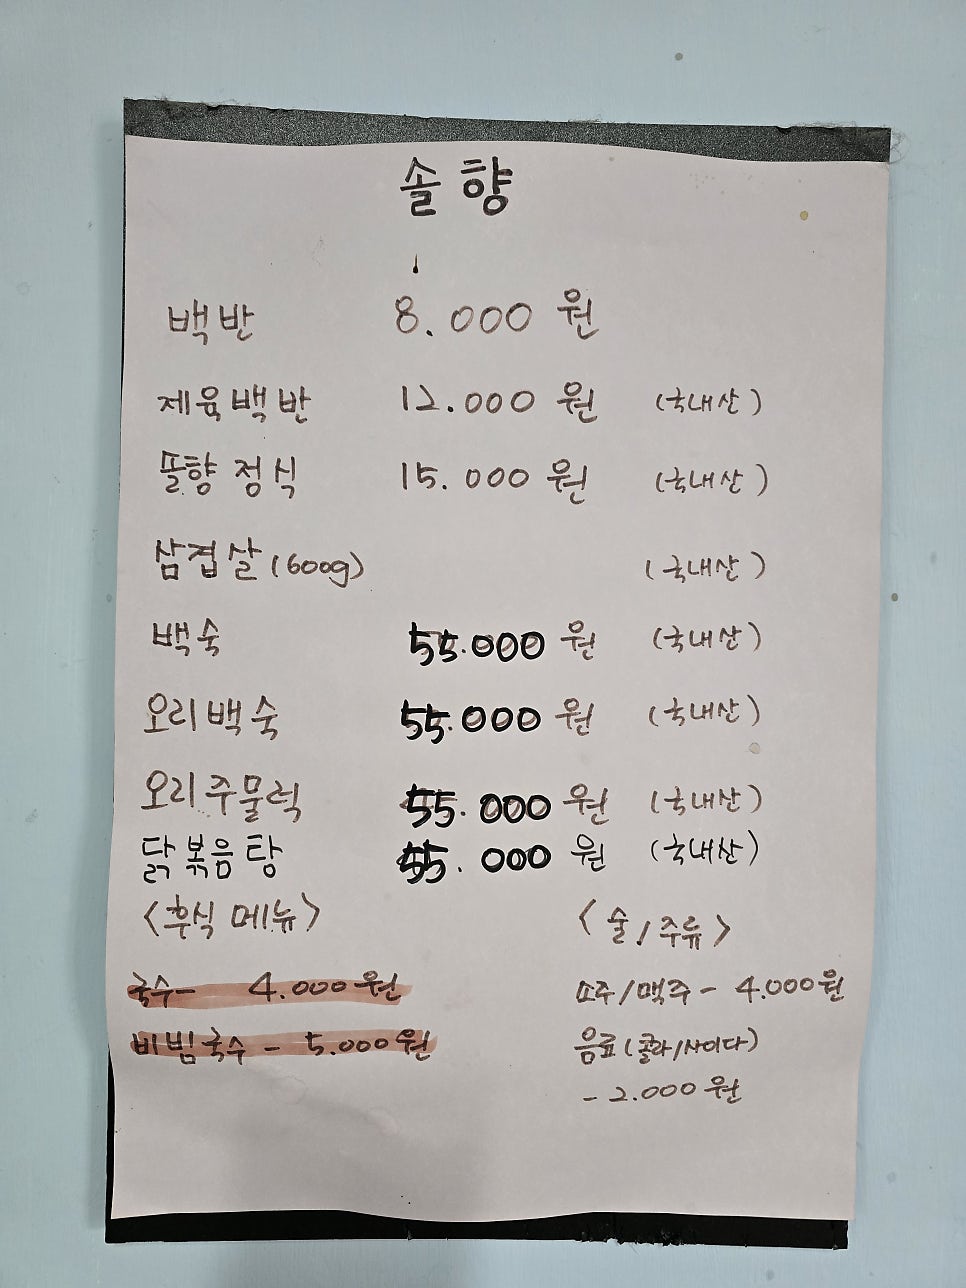 솔향
백반 8.000원
제육백반 12.000원 (국내산)
솔향 정식 15.000원 (국내산)
삼겹살(600g) (국내산)
백숙 55.000원 (국내산)
오리백숙 55.000원 (국내산)
오리주물럭 55.000원 (국내산)
닭볶음탕 55.000원 (국내산)
<후식 메뉴>
국수- 4.000원
비빔국수 - 5.000원
<술/주류>
소주/맥주 - 4.000원
음료(콜라/사이다)
- 2.000원